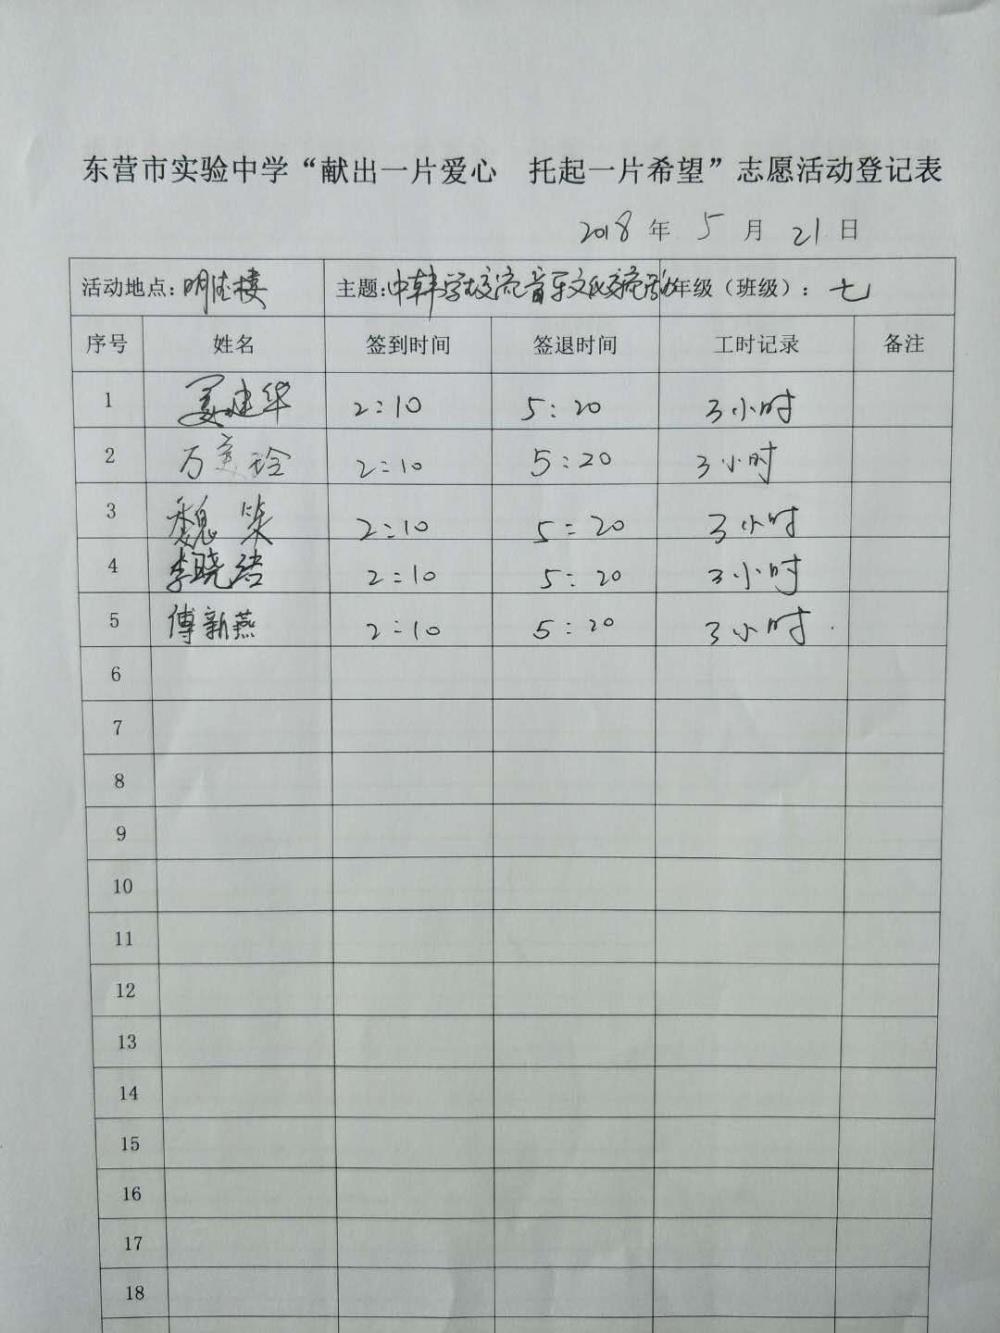 东营市实验中学“献出一片爱心　托起一片希望”志愿活动登记表
2018 年 5 月 21 日
活动地点：明德楼 主题：中韩学校交流音乐文化交流活动 年级（班级）：七
序号 姓名 签到时间 签退时间 工时记录 备注
1 姜建华 2:10 5:20 3小时
2 万美玲 2:10 5:20 3小时
3 魏 2:10 5:20 3小时
4 李晓洁 2:10 5:20 3小时
5 傅新燕 2:10 5:20 3小时.
6
7
8
9
10
11
12
13
14
15
16
17
18